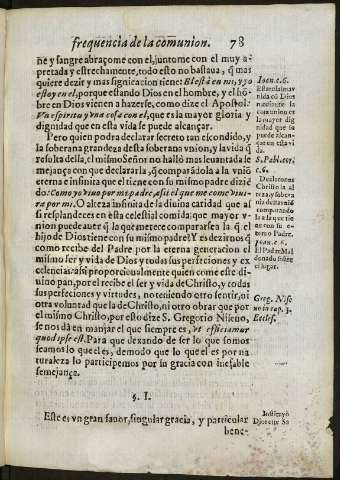 frequencia de la comunion. 78
ñe y sangre abraçome con el, juntome con el muy a-
pretada y estrechamente, todo esto no bastaua, q̃ mas
quiere dezir y mas significacion tiene: El està en mi, y yo
estoy en el, porque estando Dios en el hombre, y el hõ-
bre en Dios vienen a hazerse, como dize el Apostol:
Vn espiritu y vna cosa con el, que es la mayor gloria y
dignidad que en esta vida se puede alcançar.
Pero quien podra declarar secreto tan escondido, y
la soberana grandeza desta soberana vnion, y la vida q̃
resulta della, el mismo Señor no hallò mas leuantada se
mejança con que declararla, q̃ comparãdola a la vniõ
eterna e infinita que el tiene con su mismo padre dizié
do: Como yo viuo por mi padre, assi el que me come viui-
ra por mi. O alteza infinita de la diuina caridad que as
si resplandeces en esta celestial comida: que mayor v-
nion puede auer q̃ la que merece compararse a la q̃ el
hijo de Dios tiene con su mismo padre? Y es dezirnos q̃
como recibe del Padre por la eterna generacion el
mismo ser y vida de Dios y todas sus perfeciones y ex
celencias: assi proporcionalmente quien come este di-
uino pan, por el recibe el ser y vida de Christo, y todas
sus perfeciones y virtudes, no teniendo otro sentir, ni
otra voluntad que la de Christo, ni otro obrar que por
el mismo Christo, por esto dize S. Gregorio Niseno,
se nos dà en manjar el que siempre es, vt efficiamur
quod ipse est. Para que dexando de ser lo que somos
seamos lo que el es, de modo que lo que el es por na
turaleza lo participemos por su gracia con inefable
semejança.
§. I.
Este es vn gran fauor, singular gracia, y particular
bene-
Ioan. c. 6.
Esta es la mayor dignidad que se puede alcançar en esta vida.
S. Pabl. cori.
c. 6.
Declaronos
Christo la al
teza y sobera
nia desta vniõ
comparando
la a la que tie
ne con su e-
terno Padre.
Ioan. c. 6.
El Padre Mal
donado sobre
el lugar.
Greg. Nise
no in cap. 3.
Eccles.
Instituyò